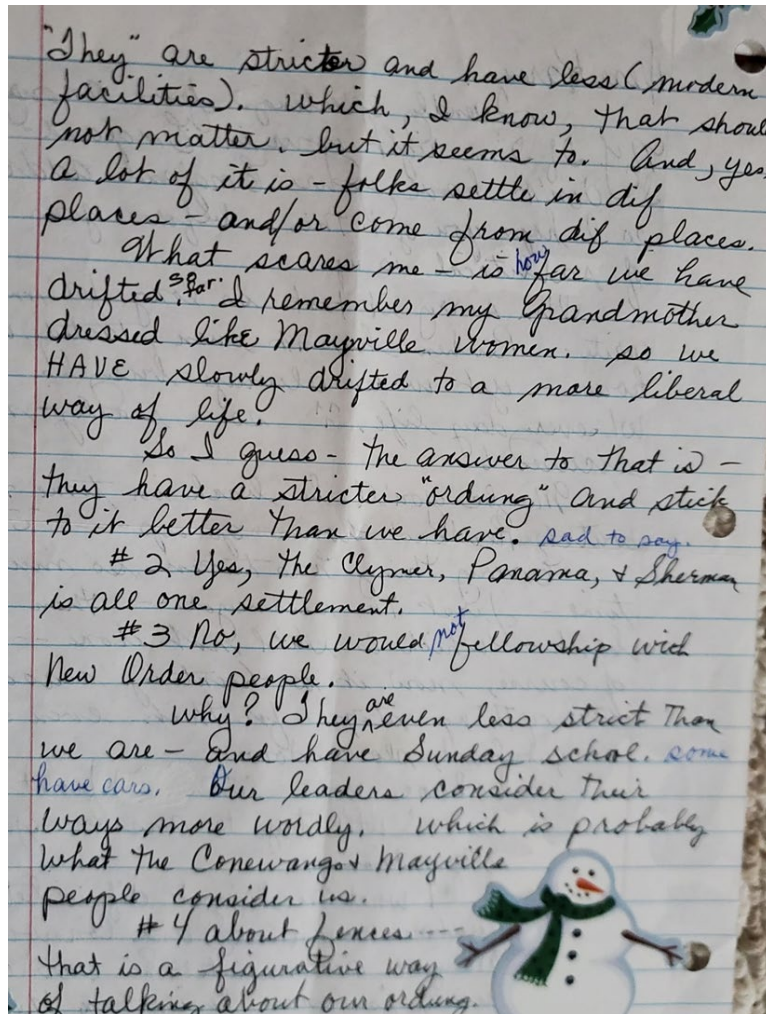 "They" are stricter and have less (modern
facilities). Which, I know, that shoul
not matter. but it seems to. And, yes,
a lot of it is - folks settle in dif
places - and/or come from dif places.
What scares me - is how far we have
drifted so far. I remember my Grandmother
dressed like Mayville women. so we
HAVE slowly drifted to a more liberal
way of life.
So I guess - the answer to that is -
they have a stricter "ordung" and stick
to it better than we have. sad to say.
#2 Yes, the Clymer, Panama, & Sherman
is all one settlement.
#3 No, we would not fellowship with
New Order people.
Why? They are even less strict than
we are - and have Sunday school. some
have cars. Our leaders consider their
ways more wordly. which is probably
what the Conewango & Mayville
people consider us.
#4 about fences ---
that is a figurative way
of talking about our ordung.